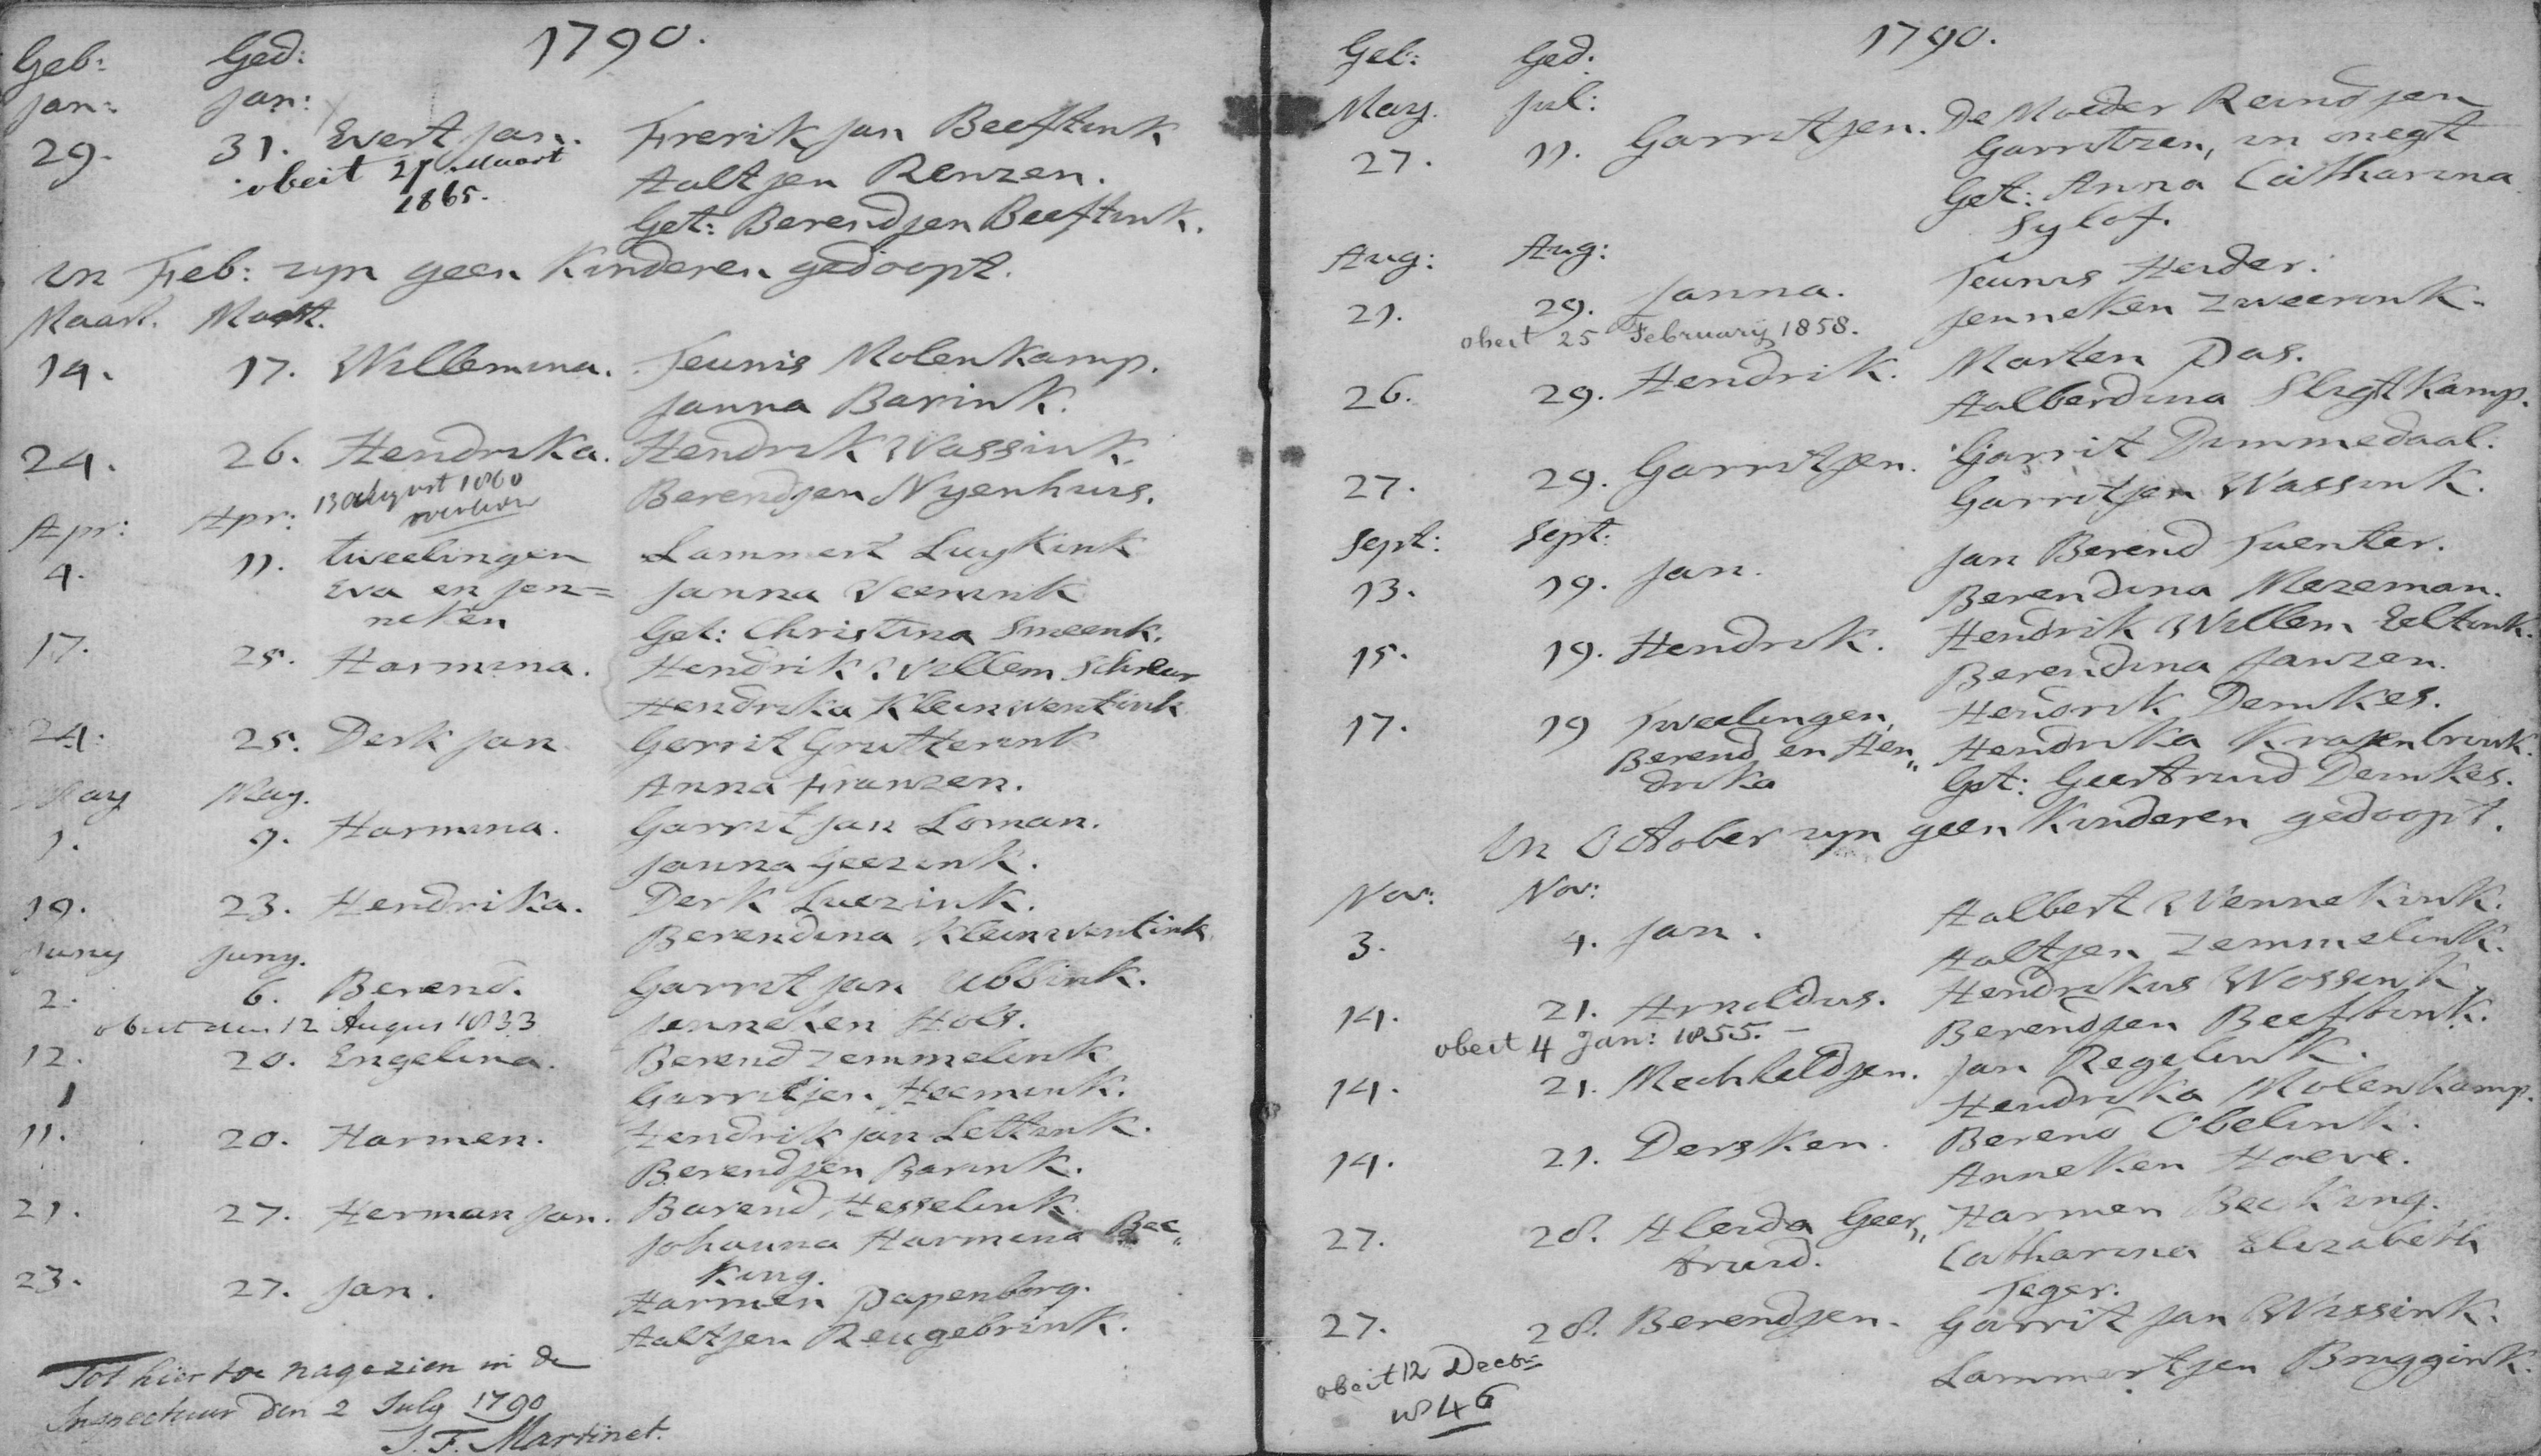 1790.
Geb: Ged:
Jan: Jan:
29. 31. Evert Jan. Frerik Jan Beeftink
obeit 21 Maart Aaltjen Renzen.
1865. Get: Berendjen Beeftink.
in Feb: zyn geen Kinderen gedoopt.
Maart. Maart.
14. 17. Willemina. Teunis Molenkamp.
Janna Barink.
24. 26. Hendrika. Hendrik Wassink.
13 August 1860 Berendjen Nyenhuis.
Apr: Apr:
4. 11. tweelingen Lammert Luykink
Eva en Jen= Janna Veenink
neken Get: Christina Smeenk.
17. 25. Harmina. Hendrik Willem Schreur
Hendrika Kleinwentink
24. 25. Derk Jan Gerrit Grutterink
Anna Franzen.
May May.
1. 9. Harmina. Garrit Jan Loman.
Janna Geezink.
19. 23. Hendrika. Derk Luezink.
Berendina Kleinwentink
Juny Juny.
2. 6. Berend. Garrit Jan Ubbink.
obeit den 12 Augus 1833 Jenneken Hols.
12. 20. Engelina. Berend Zemmelink
Garritjen Heemink.
11. 20. Harmen. Hendrik Jan Lettink.
Berendjen Barink.
21. 27. Herman Jan. Barend Hesselink
Johanna Harmina Bec„
King.
23. 27. Jan. Harmen Papenborg.
Aaltjen Reugebrink.
Tot hier toe nagezien in de
Inspectuur den 2 July 1790
J. F. Martinet.
1790.
Geb: Ged.
May. Jul:
27. 11. Garritjen. De Moeder Reindjen
Garritzen, in onegt
Get: Anna Catharina
Sylof.
Aug: Aug:
21. 29. Janna. Teunis Heider.
obeit 25 February 1858. Jenneken Zweerink.
26. 29. Hendrik. Marten Das.
Aalberdina Sligtkamp.
27. 29. Garritjen. Garrit Dimmedaal.
Garritjen Wassink.
Sept: Sept:
13. 19. Jan. Jan Berend Tuenter.
Berendina Mezeman.
15. 19. Hendrik. Hendrik Willem Eeltink.
Berendina Janzen.
17. 19 Tweelingen, Hendrik Demkes.
Berend en Hen„ Hendrika Krosenbrink.
drika Get: Geertruid Demkes.
in October zyn geen Kinderen gedoopt.
Nov: Nov:
3. 4. Jan. Aalbert Wennekink.
Aaltjen Zemmelink.
14. 21. Arnoldus. Hendrikus Wossink
obeit 4 Jan: 1855. – Berendjen Beeftink.
14. 21. Mechheldjen. Jan Regelink.
Hendrika Molenkamp.
14. 21. Dersken. Berend Obelink.
Anneken Hoeve.
27. 28. Aleida Geer„ Harmen Becking.
truid. Catharina Elizabeth
Teger.
27. 28. Berendjen. Garrit Jan Wissink.
obeit 12 Decbr: Lammertjen Bruggink.
1846